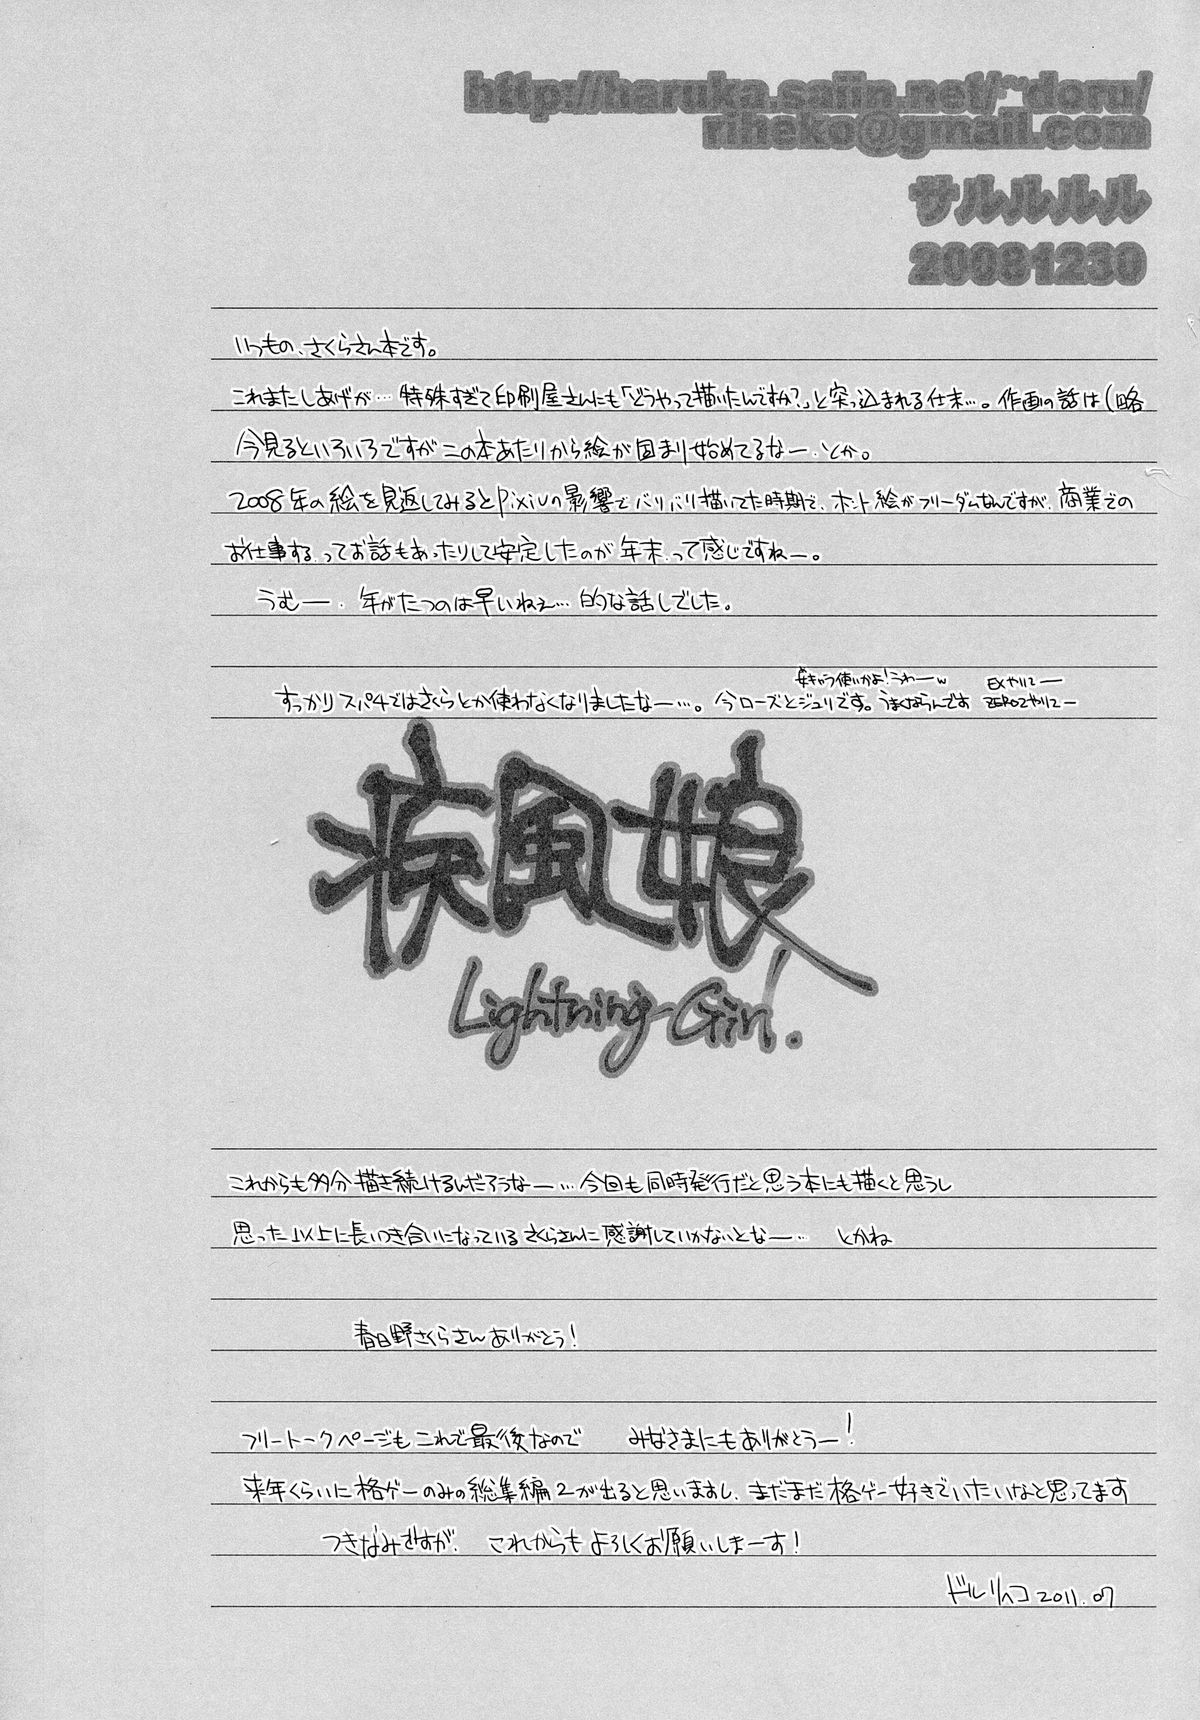 http://haruka.saiin.net/~doru/
riheko@gmail.com
サルルルル
20081230
いつもの、さくらさん本です。
これまたしあげが…特殊すぎて印刷屋さんにも「どうやって描いたんですか?」と突っ込まれる仕末…。作画の話は(略
今見るといろいろですがこの本あたりから絵が固まり始めてるなー、とか。
2008年の絵を見返してみるとpixivの影響でバリバリ描いてた時期で、ホント絵がフリーダムなんですが、商業での
お仕事するってお話もあったりして安定したのが年末って感じですねー。
うむー、年がたつのは早いねぇ…的な話しでした。
すっかりスパ4ではさくらとか使わなくなりましたなー…。今ローズとジュリです。うまくならんです
女キャラ使いかよ!うわーw
EXやりてー
ZERO2やりてー
疾風娘
Lightning-Girl.
これからも多分描き続けるんだろうなー…今回も同時発行だと思う本にも描くと思うし
思った以上に長いつき合いになっているさくらさんに感謝していかないとなー… とかね
春日野さくらさんありがとう!
フリートークページもこれで最後なので みなさまにもありがとうー!
来年くらいに格ゲーのみの総集編2が出ると思いますし、まだまだ格ゲー好きでいたいなと思ってます
つきなみですが、これからもよろしくお願いしまーす!
ドルリヘコ 2011.07